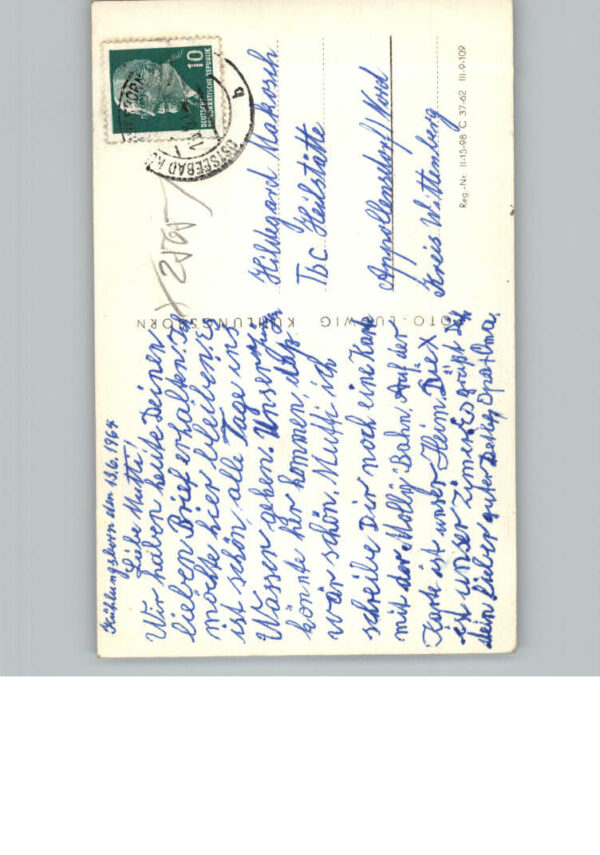 Kühlungsborn den 13.6.1964
Liebe Mutti!
Wir haben heute Deinen
lieben Brief erhalten. Ich
möchte hier bleiben, es
ist schön, alle Tage ins
Wasser gehen. Unser
könnte her kommen, das
wär schön. Mutti ich
schreibe Dir noch eine Karte
mit der Molly Bahn. Auf der
Karte ist unser Heim. Die X
ist unser Zimer. Es grüßt Dich
dein lieber guter Detlef, Opa + Oma.
FOTO-LUDWIG KÜHLUNGSBORN
10
DEUTSCHE
DEMOKRATISCHE REPUBLIK
OSTSEEBAD
b
Hildegard Makosch
Tbc Heilstätte
Apollensdorf/Nord
Kreis Wittenberg
Reg.-Nr. II-15-98 C 37-62 III-9-109